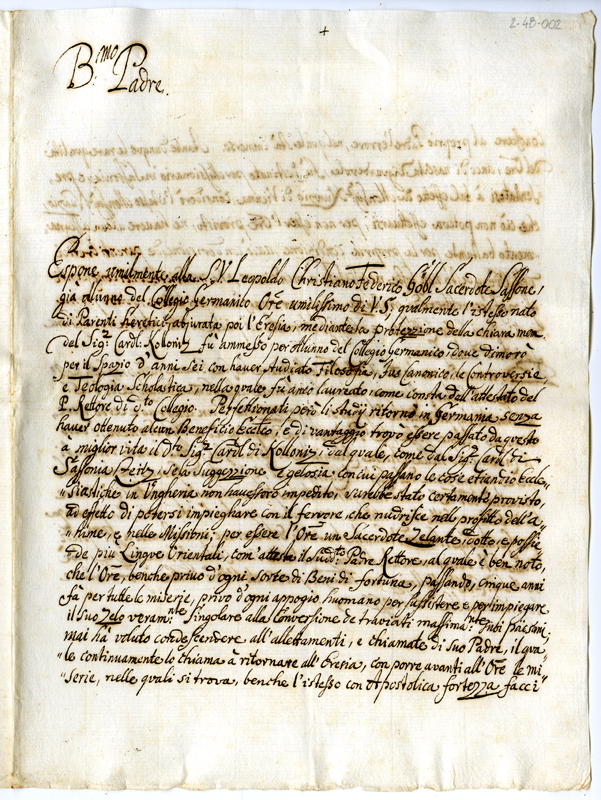 2-48-002
+
B.mo Padre.
Espone umilmente alla S.V. Leopoldo Christiano Federico Göbl Sacerdote Sassone,
già Alunno del Collegio Germanico Ore umilissimo di V.S, qualmente l'istesso nato
di Parenti heretici, abjurata poi l'Eresia, mediante la protezzione della chiara mem.
del Sig.r Card.l Kollonitz fu ammesso per Alunno del Collegio Germanico doue dimorò
per il Spazio d'anni sei con hauer studiato Filosofia, Jus Canonico, le Controversie,
e Teologia Scholastica, nella quale fù anco laureato, come consta dall'attestato del
P. Rettore di d.to Collegio. Perfettionati però li Study ritornò in Germania senza
hauer ottenuto alcun Beneficio Eccl.co, e di vantaggio trovò essere passato da questo
à miglior vita il D.to Sig.r Card.l di Kollonitz, dal quale, come dal Sig.r Card.l di
Sassonia Zeitz, se la Suggezzione e gelosia con cui passano le cose etiandio Eccle„
„siastiche in Ungheria non hauessero impedito, sarebbe stato certamente provisto,
ad effetto di potersi impieghare con il fervore che nudrisce nell profitto dell'a„
„nime, e nelle Missioni; per essere l'Ore un Sacerdote Zelante, dotto, e possie„
„de più Lingue Orientali, com'attesta il sud.to Padre Rettore, al quale è ben noto,
che l'Ore, benche privo d'ogni sorte di Beni di fortuna, passando, cinque anni
fà per tutte le miserie, privo d'ogni appogio huomano per sussistere e per impiegare
il Suo Zelo veram.nte Singolare alla Conversione de traviati massima.nte Suoi Paesani,
mai hà voluto condescendere all'allettamenti, e chiamate di Suo Padre, il qua„
„le continuamente lo chiama à ritornare all'Eresia, con porre avanti all'Ore le mi„
„Serie, nelle quali si trova, benche l'istesso con Apostolica fortezza facci